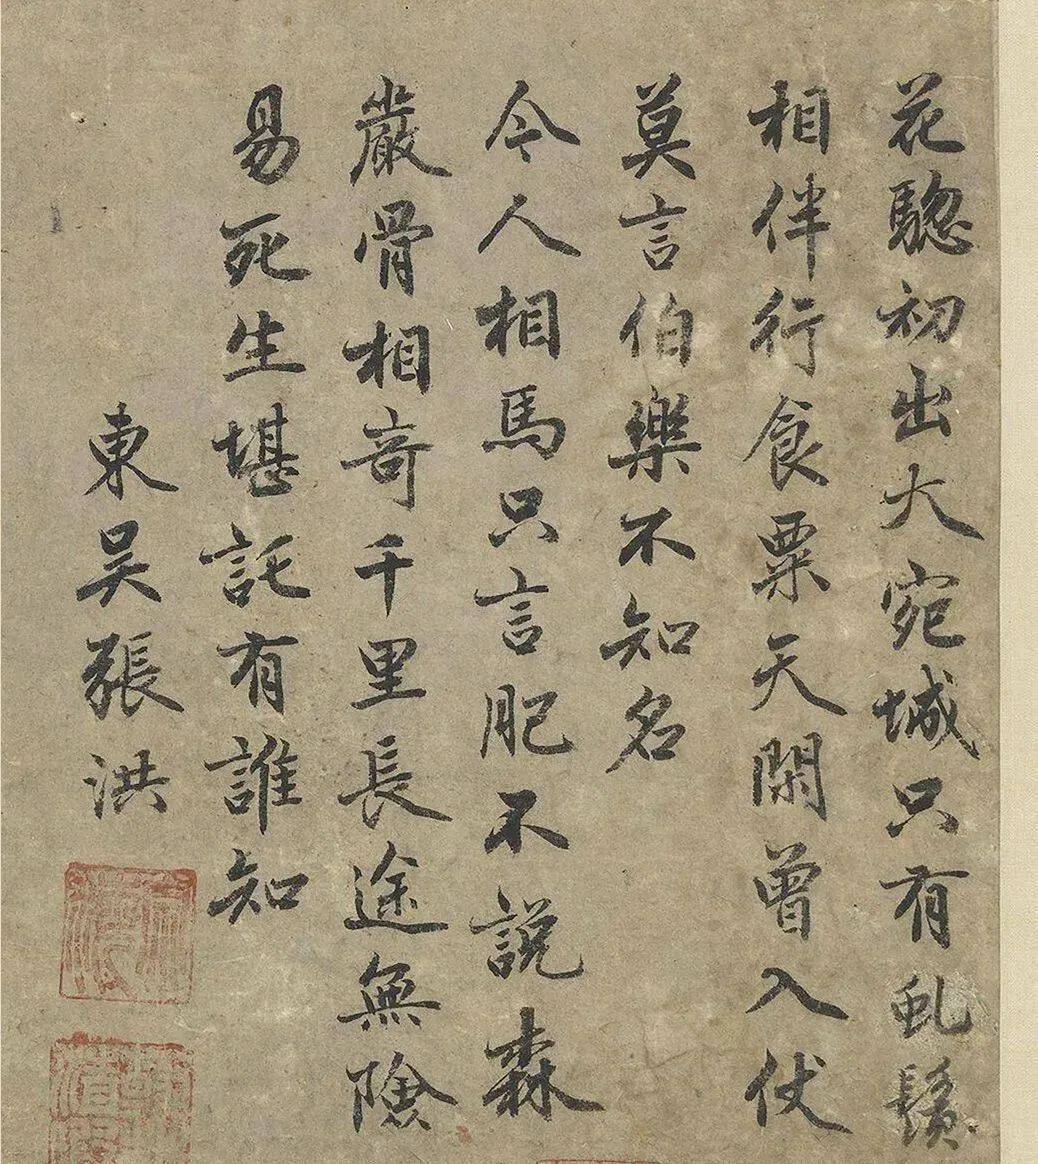 花驄初出大宛城只有虬鬚
相伴行食粟天閑曾入伏
莫言伯樂不知名
今人相馬只言肥不說森
嚴骨相奇千里長途無險
易死生堪託有誰知
東吴張洪